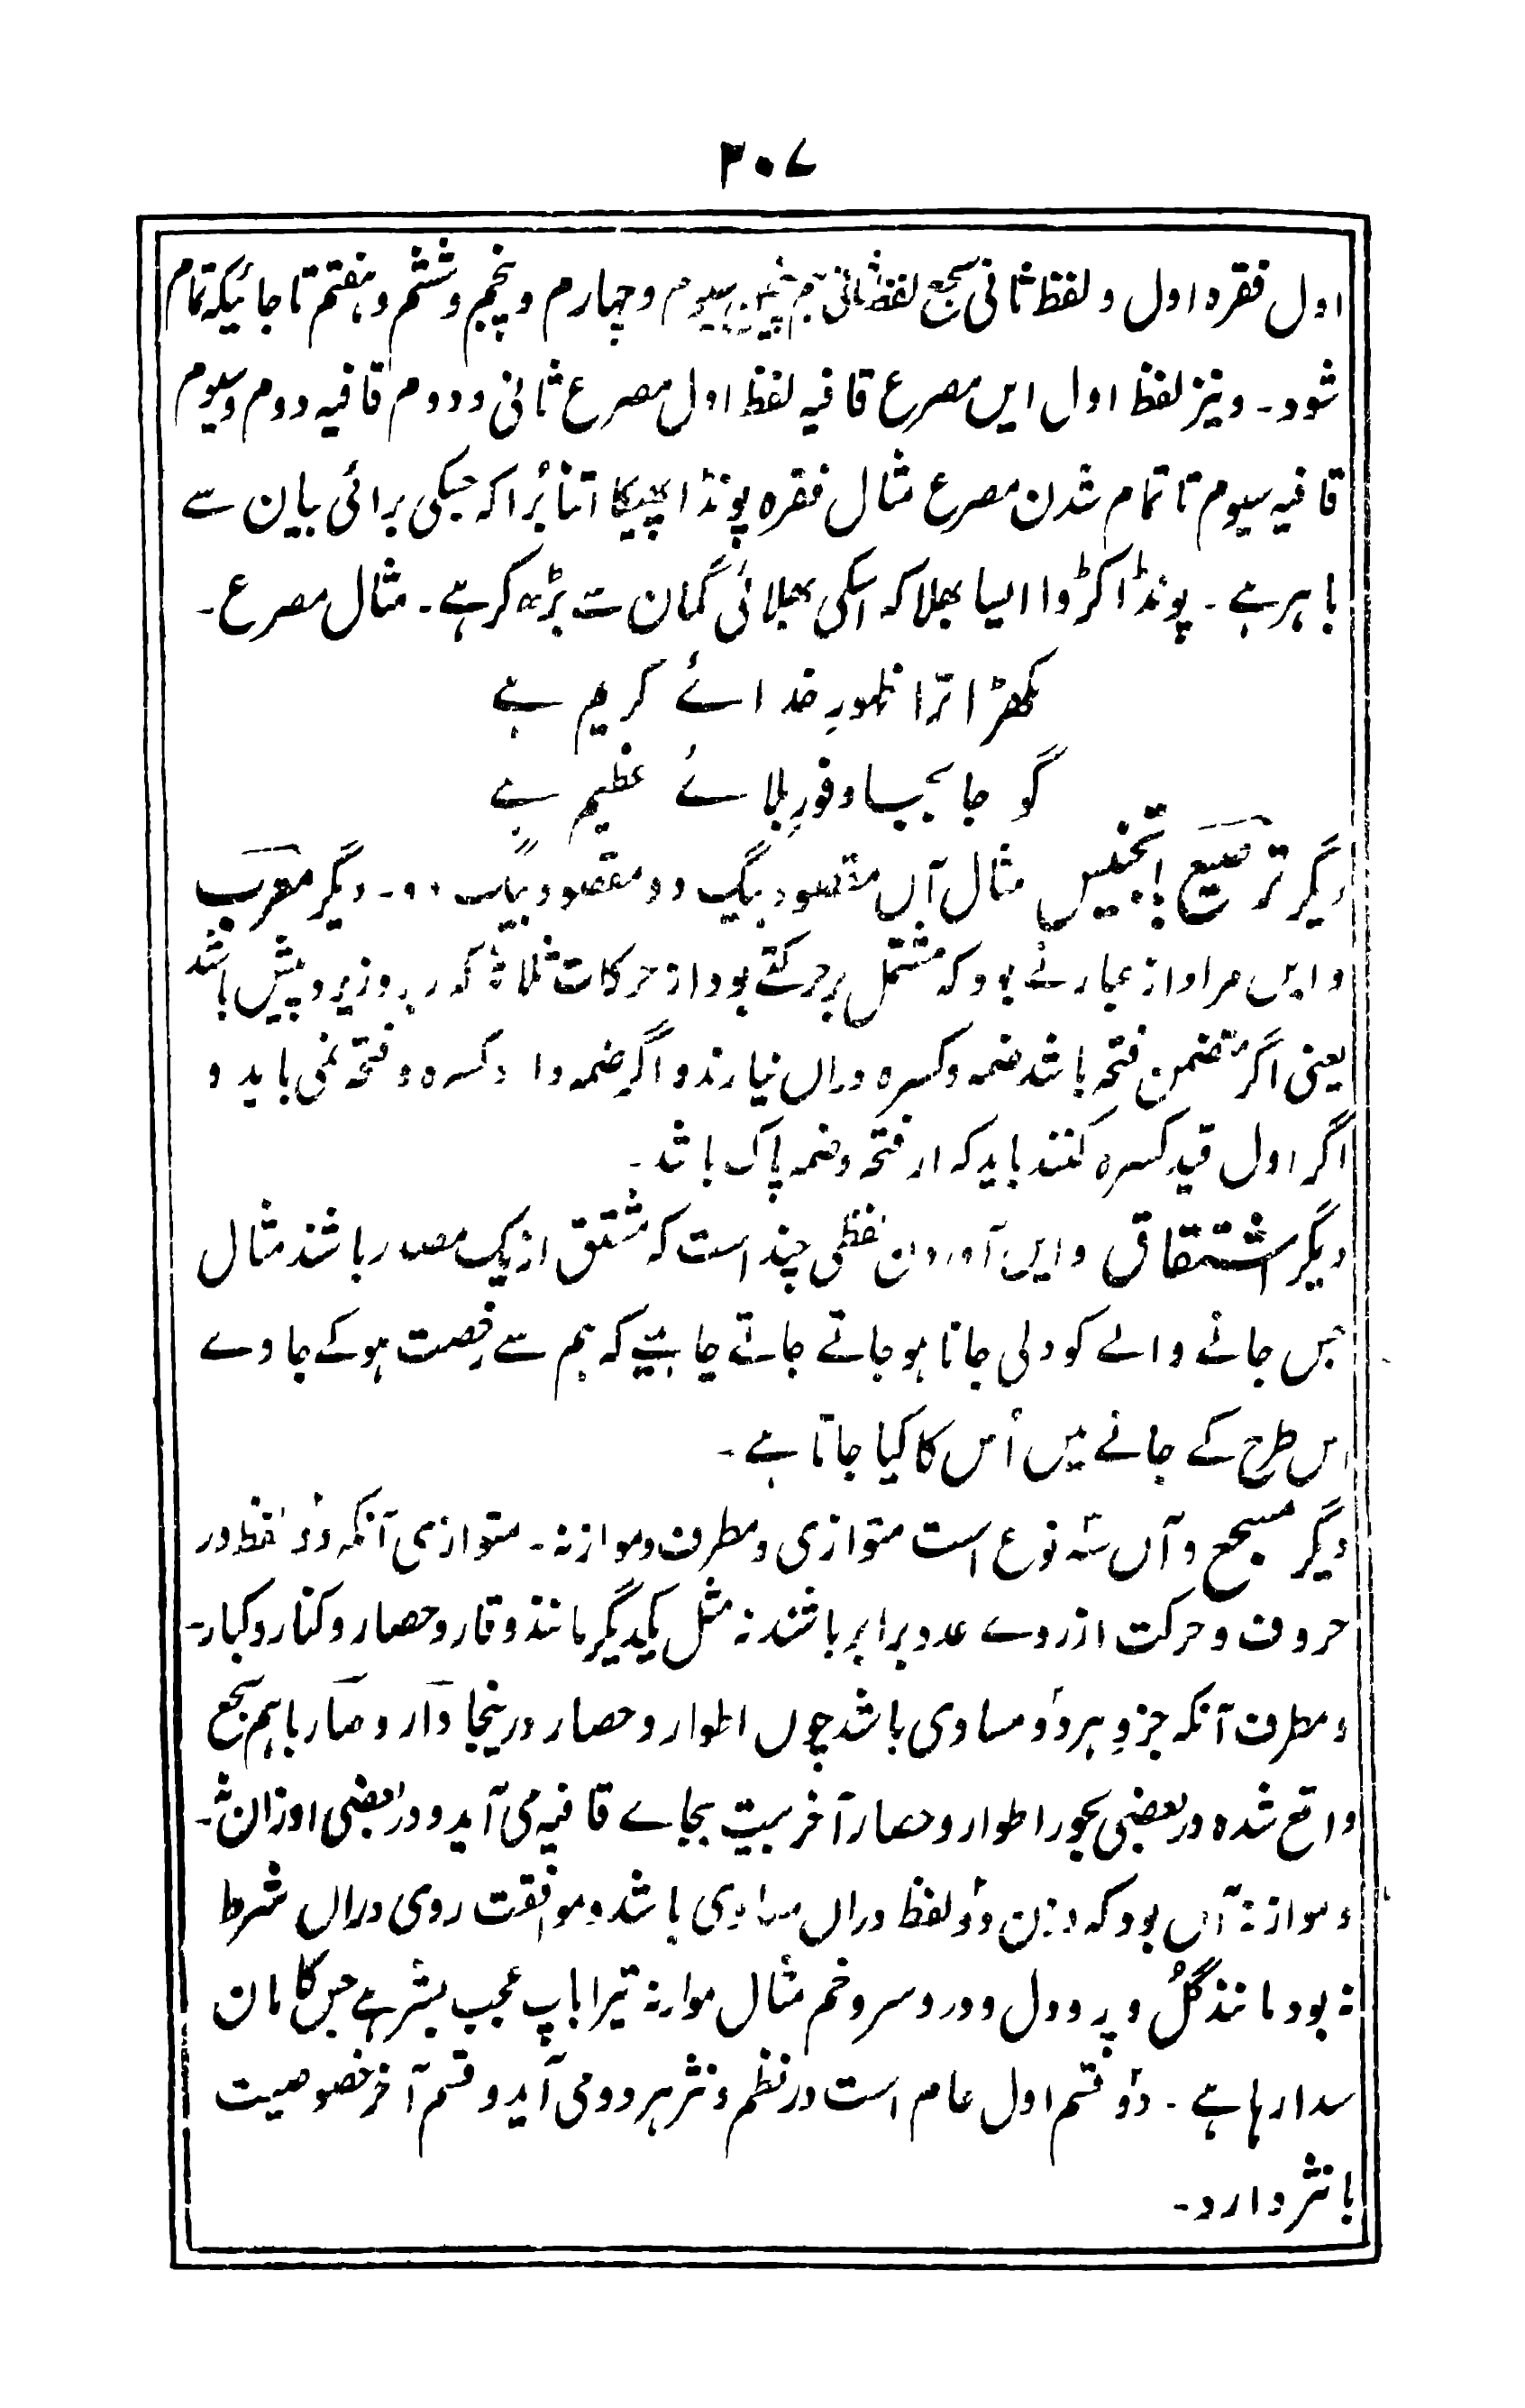 ۳۰۷
اول فقرہ اول و لفظ ثانی سجع لفظ ثانی ہم چنیں سیوم و چہارم و پنجم و ششم و ہفتم تا جائیکہ تمام
شود۔ و نیز لفظ اول ایں مصرع قافیہ لفظ اول مصرع ثانی و دوم قافیہ دوم و سیوم
قافیہ سیوم تا تمام شدن مصرع مثال فقرہ پونڈا پھیکا اتنا بُرا کہ جسکی برائی بیان سے
باہر ہے۔ پونڈا کڑوا ایسا بھلا کہ اسکی بھلائی گمان سے بڑھ کر ہے۔ مثال مصرع۔
مکھڑا ترا ظہورِ خدائے کریم ہے
گو جا بجا وفورِ بلائے عظیم ہے
دیگر ترصیع بتجنیس مثال آں مقصود بیگ دو مقصود بیگ دو۔ دیگر معرب
و ایں مراد از عبارتے بود کہ مشتمل بر حرکتے بود از حرکات ثلاثہ کہ زبر و زیر و پیش باشد
یعنی اگر متضمن فتحہ باشد ضمہ و کسرہ دراں نیارند و اگر ضمہ دارد کسرہ و فتحہ نمی باید و
اگر اول قید کسرہ کنند باید کہ از فتحہ و ضمہ پاک باشد۔
دیگر اشتقاق و ایں آوردن لفظی چند است کہ مشتق از یک مصدر باشند مثال
جس جانے والے کو دلی جانا ہو جاتے جاتے چاہیے کہ ہم سے رخصت ہو کے جاوے
اس طرح کے جانے میں اُس کا کیا جاتا ہے۔
دیگر مسجع و آں سہ نوع است متوازی و مطرف و موازنہ۔ متوازی آنکہ دو لفظ در
حروف و حرکت از روے عدد برابر باشند نہ مثل یکدیگر مانند وقار و حصار و کنار و کبار۔
و مطرف آنکہ جزوِ ہر دو مساوی باشد چوں اطوار و حصار درینجا وَار و صَار باہم سجع
واقع شدہ در بعضی بحور اطوار و حصار آخر بیت بجاے قافیہ می آید و در بعضی اوزان نہ۔
و موازنہ آں بود کہ وزن دو لفظ دراں مساوی باشد و موافقت روی دراں شرط
نہ بود مانند گُل و پر و دل و در و سر و خم مثال موازنہ تیرا باپ عجب بشر ہے جس کا مان
سدا رہا ہے۔ دو قسم اول عام است در نظم و نثر ہر دو می آید و قسم آخر خصوصیت
با نثر دارد۔